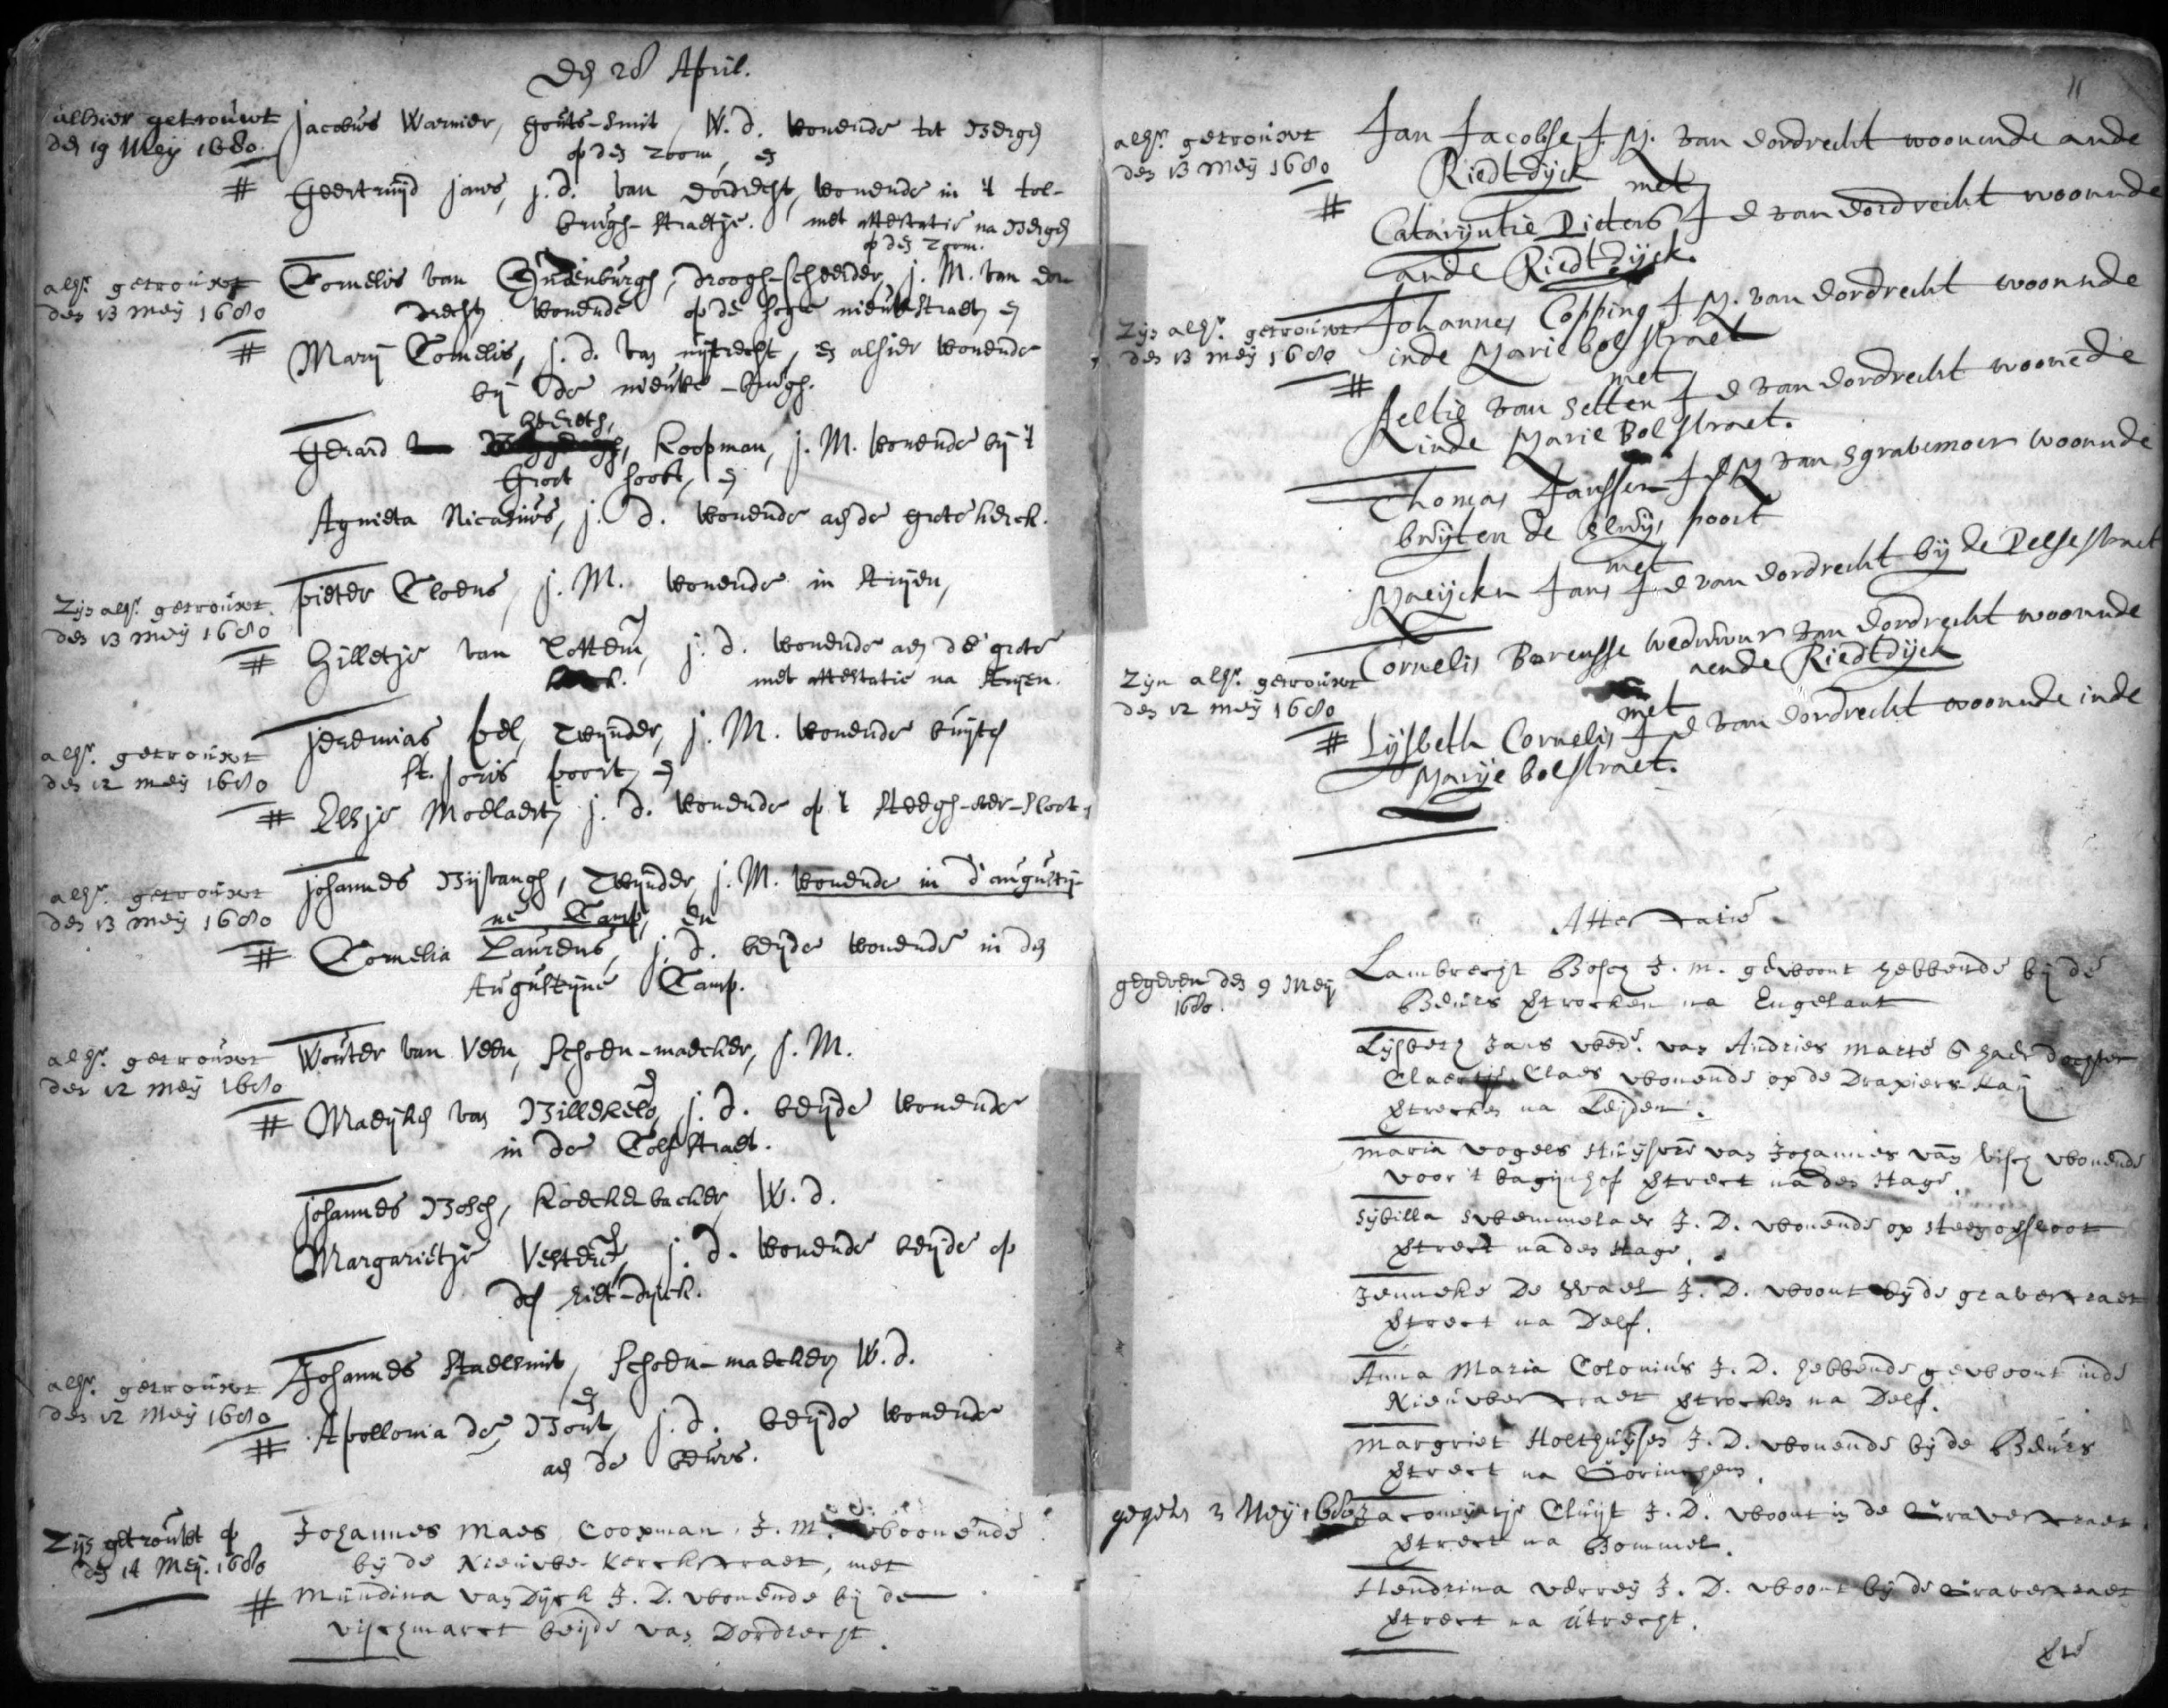 Den 28 April.
alhier getrouwt
den 19 Meij 1680.
Jacobus Warnier, Gouts-smit, W. d. wonende tot Bergen
op den Zoom, en
# Geertruijd Jans, j. d. van Dordrecht, wonende in 't tol-
brugh-straetje. met attestatie na Bergen
op den Zoom.
alhr. getrouwt
den 13 meij 1680
Cornelis van droogh-scheerder, j. M. van Dor
drecht, wonende op de hoge nieuwstraet, en
# Marij Cornelis, j. d. van uijtrecht, en alhier wonende
bij de nieuwe-brugh.
Gerard Koopman, j. M. wonende bij 't
Groot hooft, en
Agnieta Nicasius, j. d. wonende aen de grote kerck.
Zijn alhr. getrouwt.
den 13 meij 1680
Pieter Cloens, j. M. wonende in Strijen,
# Gilletje van Lottem, j. d. wonende aen de grote
kerck. met attestatie na Strijen.
alhr. getrouwt
den 12 meij 1680
Jeremias Pel, Twijnder, j. M. wonende buijten
St. Joris poort, en
# Elsje Moelaert, j. d. wonende op 't Steegh-over-sloot.
alhr. getrouwt
den 13 meij 1680
Johannes Bijvangh, Twijnder, j. M. wonende in d'augustij-
ne Camp, en
# Cornelia Laurens, j. d. beijde wonende in den
Augustijne Camp.
alhr. getrouwt
den 12 meij 1680
Wouter van Veen, Schoen-maecker, j. M.
en
# Maeijken van Billekens, j. d. beijde wonende
in de Tolstraet.
Johannes Bosch, Koeckebacker, W. d.
en
Margarietje j. d. wonende beijde op
den riet-dyck.
alhr. getrouwt
den 12 Meij 1680
Johannes Staelsmit, Schoen-maecker, W. d.
en
# Apollonia de Bout, j. d. beijde wonende
aen de beurs.
Zijn getrouwt op
den 14 Meij. 1680
Johannes Maes Coopman. J. M. woonende
bij de Nieuwe kerckstraet, met
# Mundina van Dijck J. D. wonende bij de
vischmarct beijde van Dordrecht.
11
alhr. getrouwt
den 13 meij 1680
#
Jan Jacobse J. M. van dordrecht woonende ande
Riedtdijck met
Catarijntie Pieters J d van dordrecht woonnde
ande Riedtdijck.
Zijn alhr. getrouwt
den 13 meij 1680
#
Johannes Copping J. M. van dordrecht woonnde
inde Mariebolstraet
met
Aeltie van Setten J d van dordrecht woonede
inde Marie Bolstraet.
Thomas Janssen J M van sgravemoer woonnde
buijten de sluijs poort
met
Maeijcken Jans J d van dordrecht bij de Pelsestraet
Zijn alhr. getrouwt
den 12 meij 1680
#
Cornelis Barensse weduwnr van dordrecht woonnde
aende Riedtdijck
met
Lijsbeth Cornelis J d van dordrecht woonnde inde
Marije bolstraet.
Attestatie
gegeven den 9 Meij
1680.
Lambrecht Bosch J. M. gewoont hebbende bij de
Beurs vertrocken na Engelant
Lijsbeth Jans wed. van Andries Marte en haer dochter
Claertje Claes wonende op de Drapiers kaij
vertrecken na Leijden.
Maria Vogels Huijsvr van Johannes van Visch wonende
voor 't bagijnhof vertrect na den Hage.
Sijbilla Swemmelaer J. D. wonende op steeghoversloot
vertrect na den Hage.
Jenneke De Wael J. D. woont bij de gravestraet
vertrect na Delf.
Anna Maria Colonius J. D. hebbende gewoont inde
Nieuwestraet vertrocken na Delf.
Margriet Holthuijsen J. D. wonende bij de Beurs
vertrect na Gorinchem.
gegeven 3 Meij 1680
Jacomijntje Cluijt J. D. woont in de Gravestraet
vertrect na Bommel.
Hendrina Verreij J. D. woont bij de Gravestraet
vertrect na Utrecht.